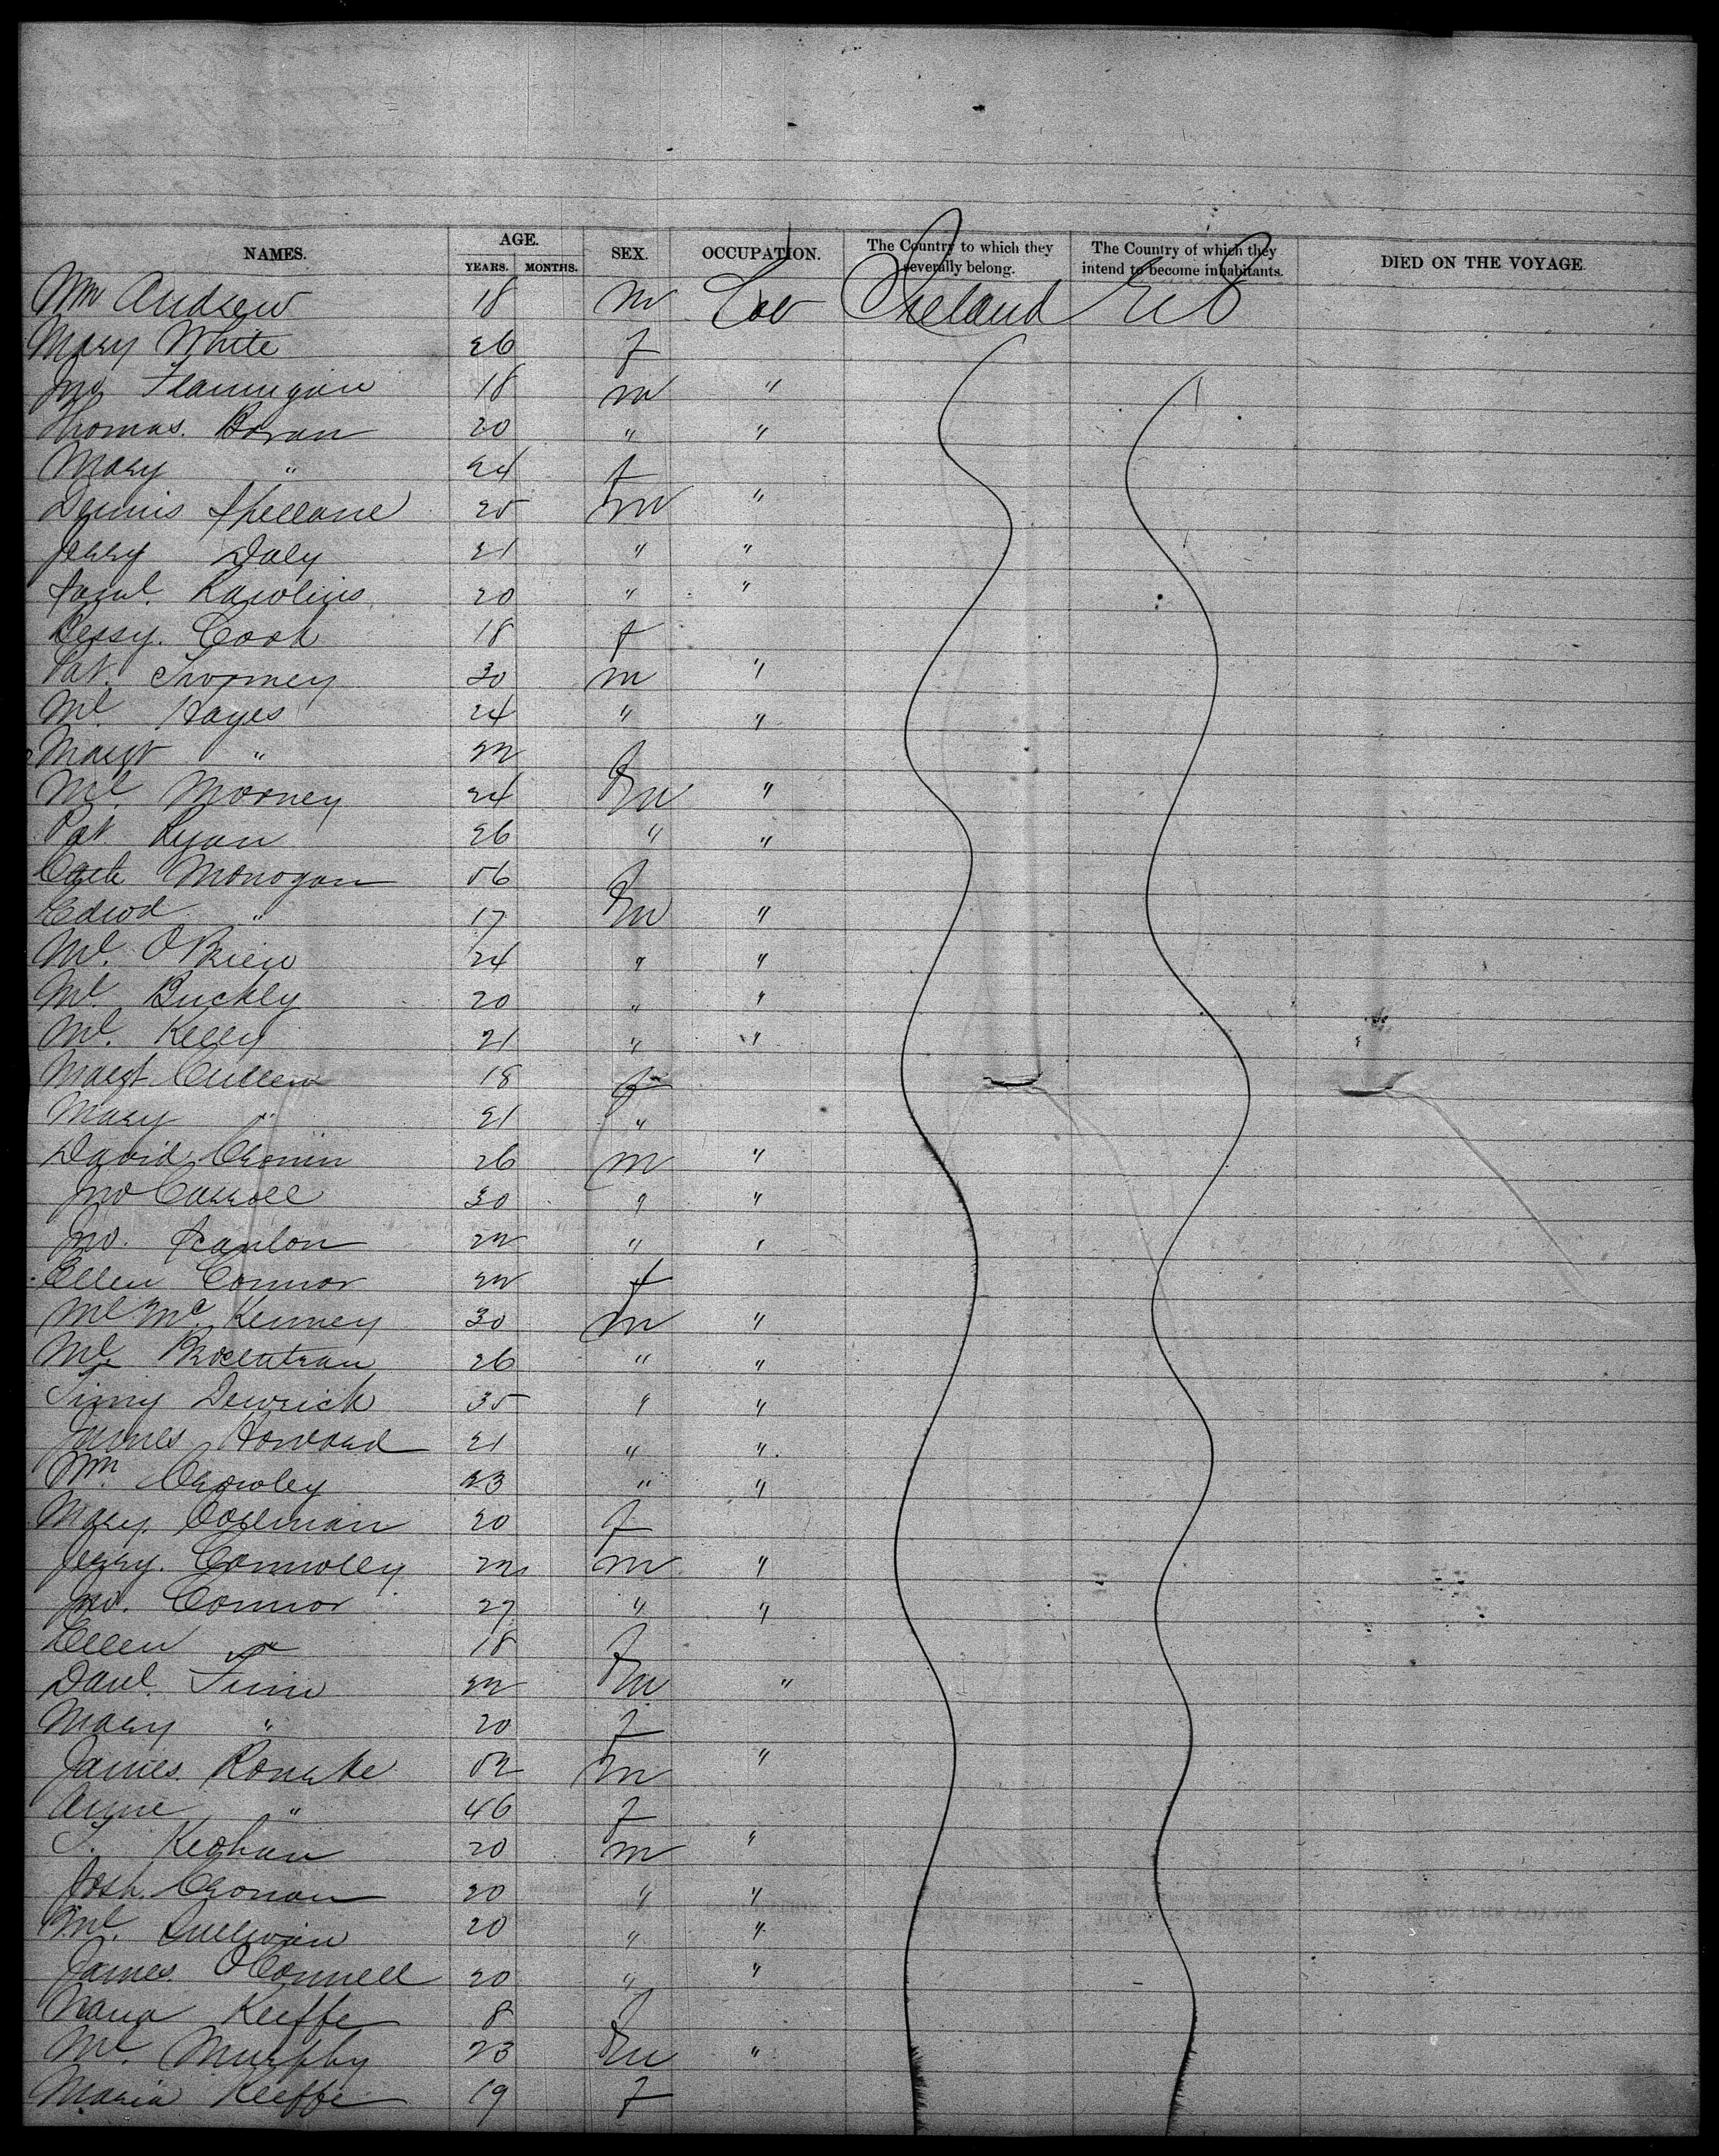 NAMES. AGE. SEX. OCCUPATION. The Country to which they severally belong. The Country of which they intend to become inhabitants. DIED ON THE VOYAGE.
YEARS. MONTHS.
Wm Andrew 18 m Lab Ireland
Mary White 26 f
Jno Flannigan 18 m "
Thomas. Boran 20 " "
Mary " 24 f
Dennis Shellane 25 m "
Jerry Daly 21 " "
Saml. Rawlins 20 " "
Bessy. Cook 18 f
Pat. Twomey 30 m "
Ml. Hayes 24 " "
Margt " 22 f
Ml. Mooney 24 m "
Pat. Ryan 26 " "
Cath Monogan 56 f
Edwd " 17 m "
Ml. OBrien 24 " "
Ml. Buckly 20 " "
Ml. Kelly 21 " "
Margt Cullen 18 f
Mary " 21 "
David Cronin 26 m "
Jno Carroll 30 " "
Jno. Scanlon 22 " "
Ellen Connor 22 f
Ml McKenney 30 m "
Ml. 26 " "
Timy Dewrick 35 " "
James Howard 21 " "
Wm. Crowley 23 " "
Mary. Coleman 20 f
Jerry. Connolly 22 m "
Jno. Connor 27 " "
Ellen " 18 f
Danl. Finn 22 m "
Mary " 20 f
James. Rourke 52 m "
Anne " 46 f
T. Keohan 20 m "
Josh. Cronan 20 " "
Ml. Sullivan 20 " "
James. OConnell 20 " "
Nana Keeffe 8 f
Ml. Murphy 23 m "
Maria Keeffe 19 f